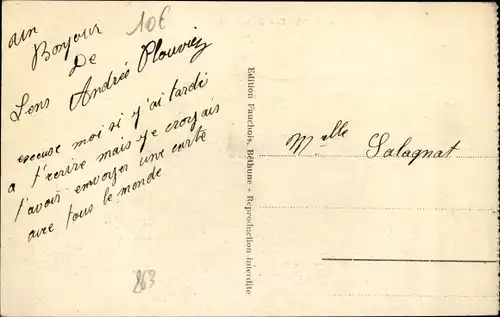 un
Bonjour
10€
De
Lens André Plouviez
excuse moi si j'ai tardé
a t'écrire mais je croyais
t'avoir envoyer une carte
avec tous le monde
263
Edition Fauchois, Béthune - Reproduction interdite
Mlle Salagnat